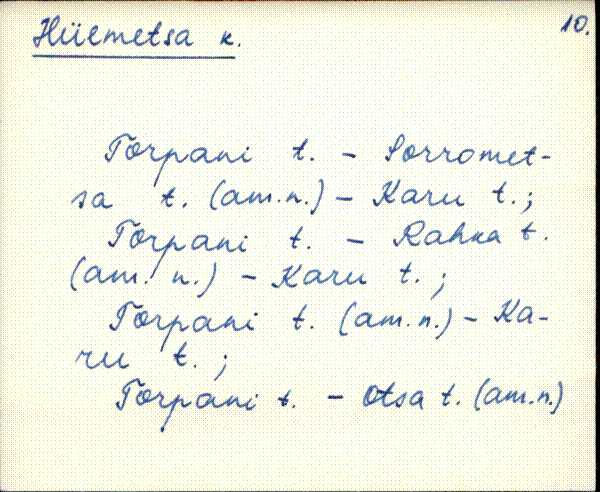 Hüemetsa k.
10.
Torpani t. - Sorromet-
sa t. (am.n.) - Karu t.;
Torpani t. - Rahka t.
(am. n.) - Karu t.;
Torpani t. (am.n.) - Ka-
ru t.;
Torpani t. - Otsa t. (am.n.)